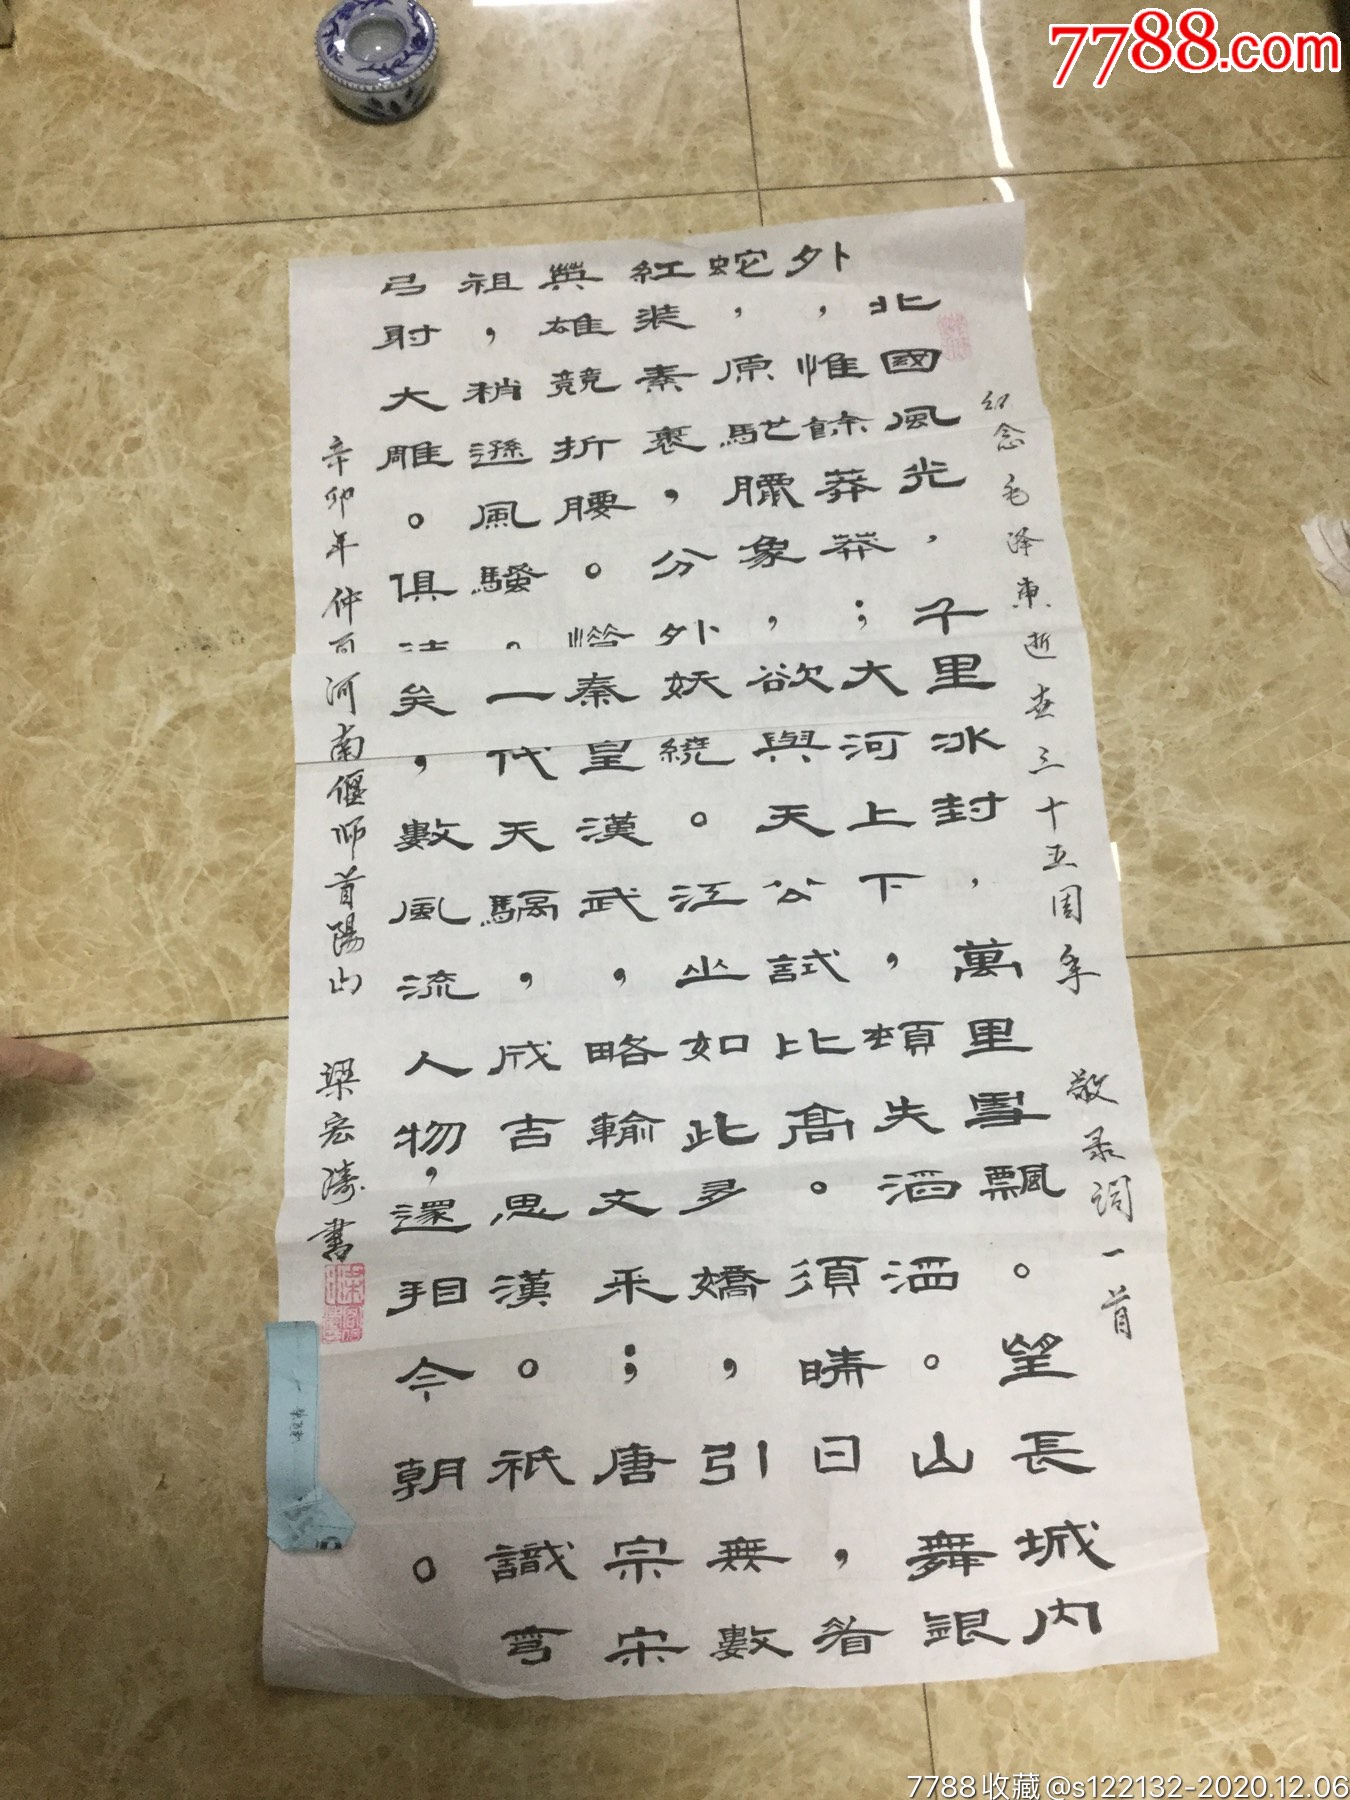 纪念毛泽東逝世三十五周年 敬录词一首
北國風光，千里冰封，萬里雪飄。望長城内
外，惟餘莽莽；大河上下，頓失滔滔。山舞銀
蛇，原馳臘象，欲與天公試比高。須晴日，看
紅装素裹，分外妖繞。江山如此多嬌，引無數
英雄競折腰。惜秦皇漢武，略輸文采；唐宗宋
祖，稍遜風騷。一代天驕，成吉思漢。祇識彎
弓射大雕。俱往矣，數風流人物，還相今朝。
辛卯年仲夏河南偃师首陽山 梁宏濤書
7788.com
7788收藏@s122132-2020.12.06